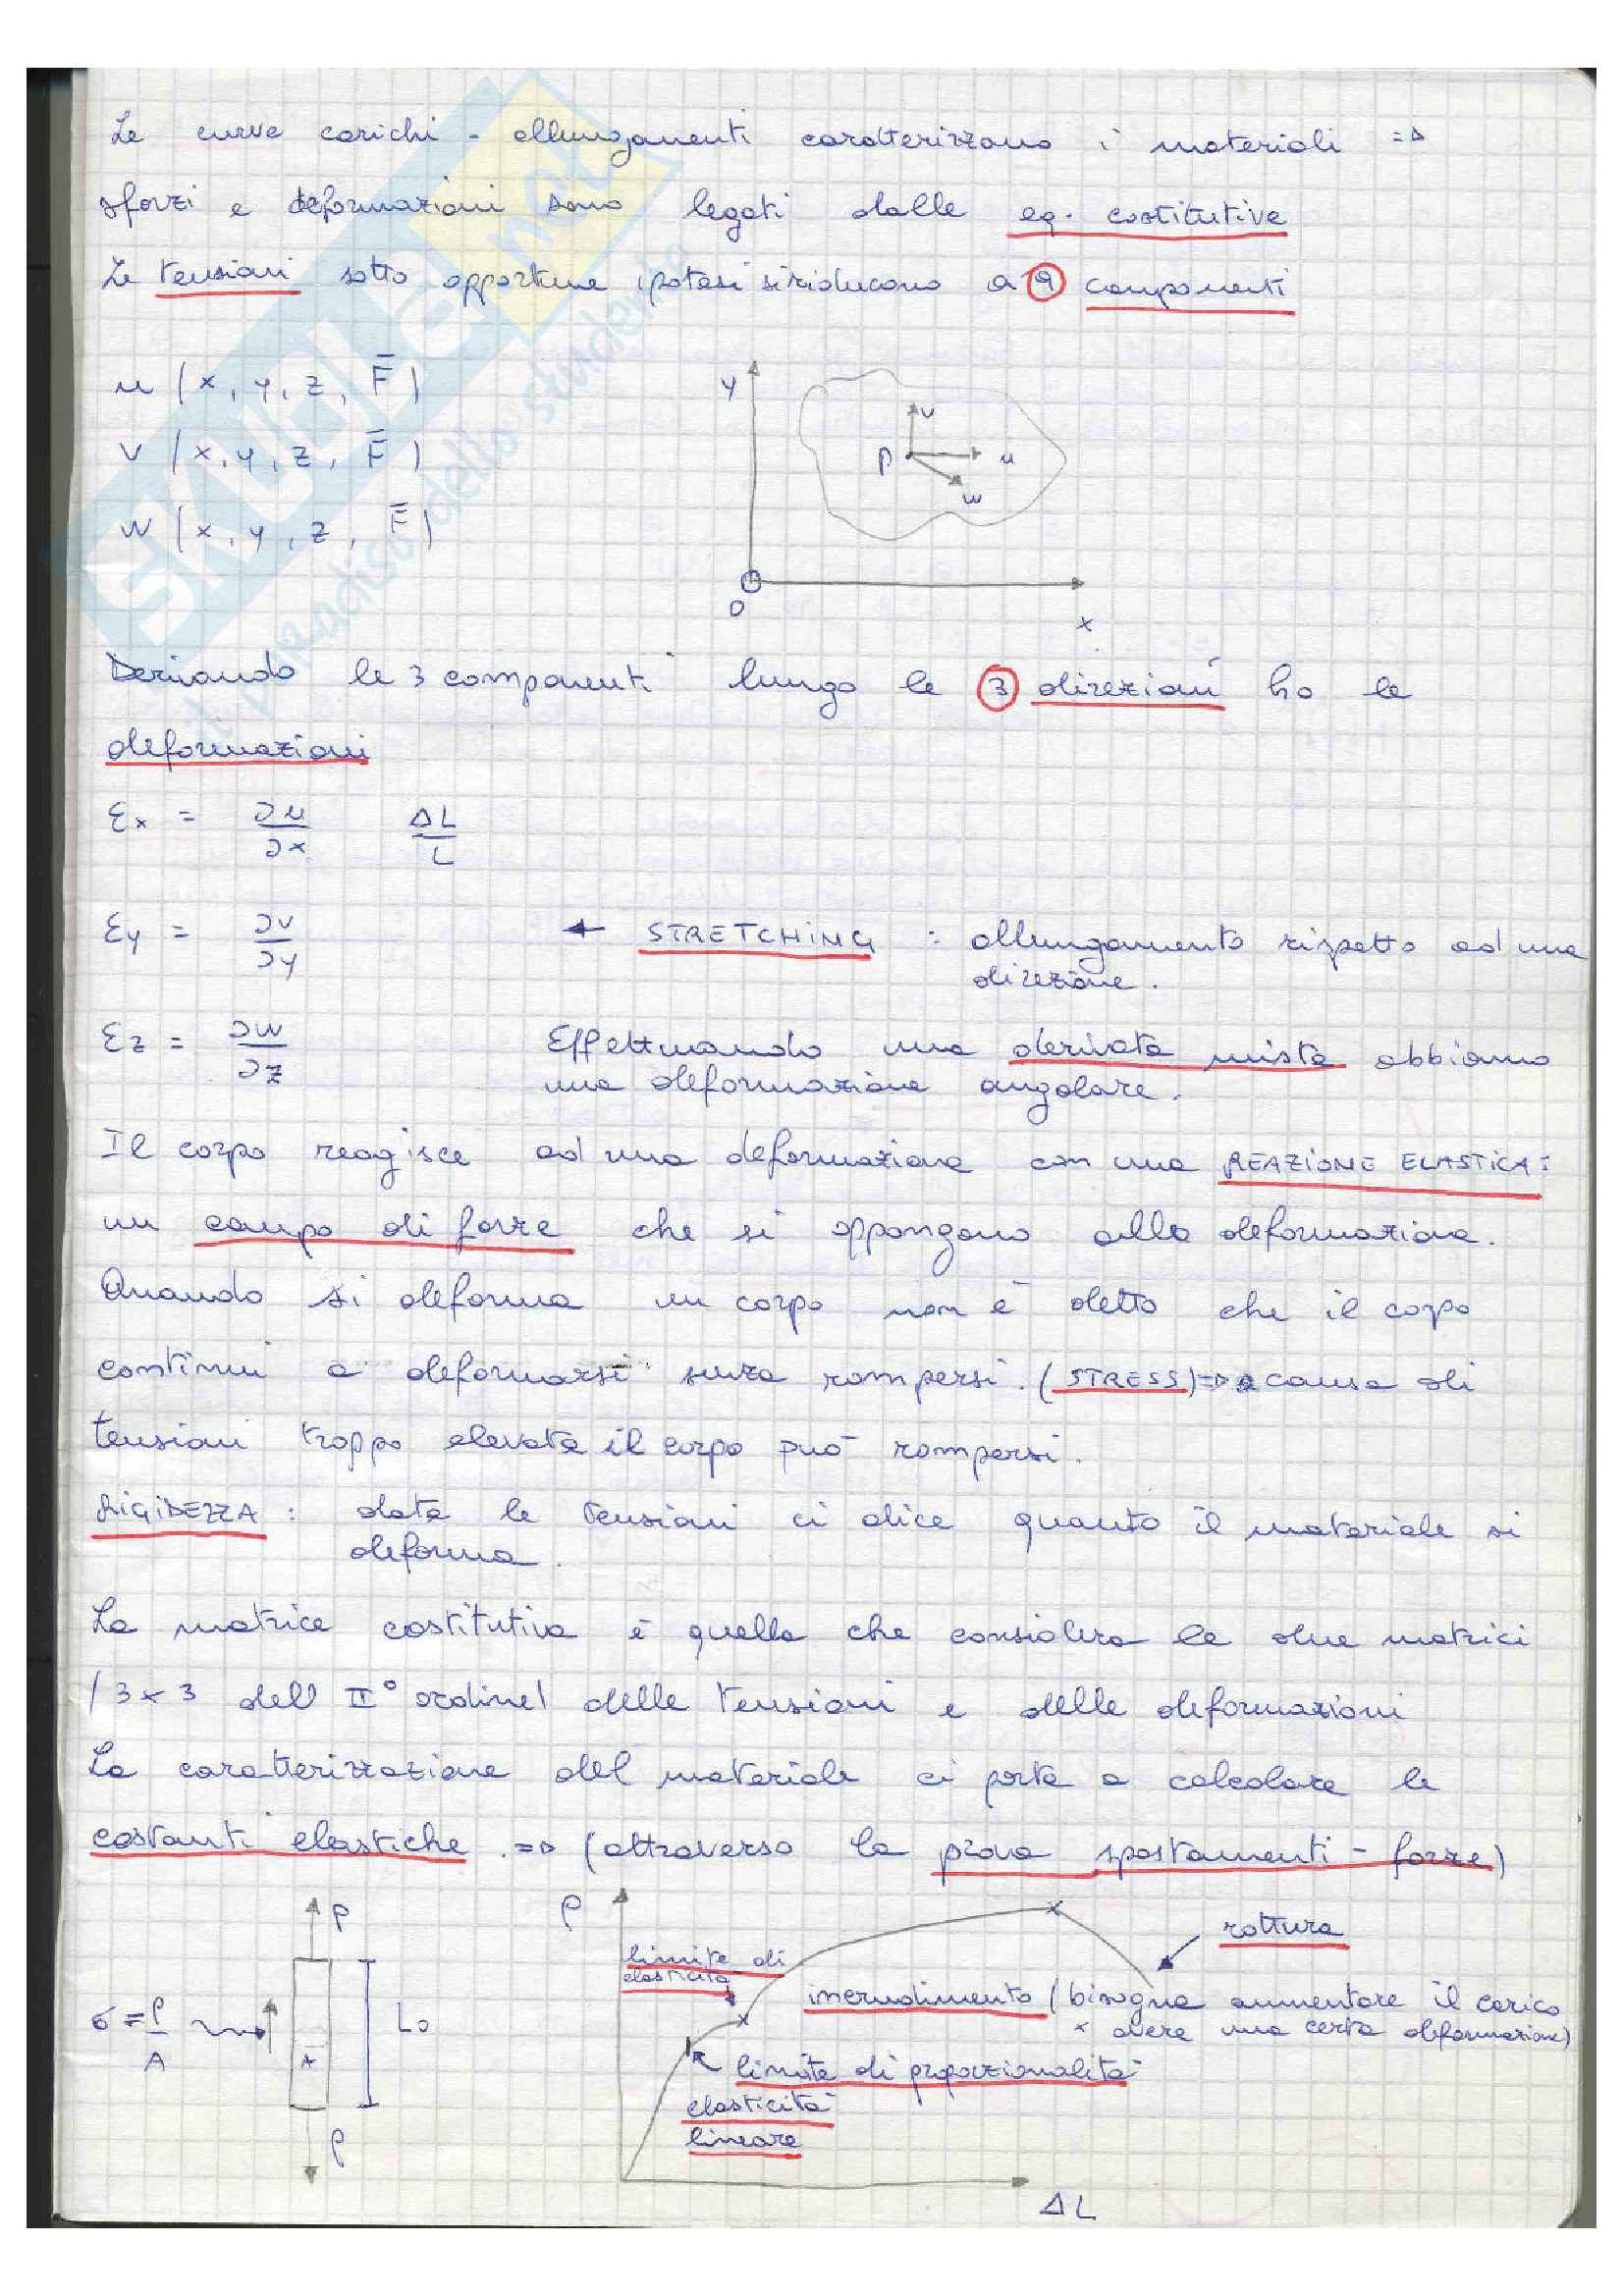 Le curve carichi - allungamenti caratterizzano i materiali =>
sforzi e deformazioni sono legati dalle eq. costitutive
Le tensioni sotto opportune ipotesi si riducono a 9 componenti
u (x, y, z, F̅)
v (x, y, z, F̅)
w (x, y, z, F̿)
y
v
P
u
w
O
x
Derivando le 3 componenti lungo le 3 direzioni ho le
deformazioni
Ɛx = ∂u/∂x ΔL/L
Ɛy = ∂v/∂y ← STRETCHING : allungamento rispetto ad una
direzione.
Ɛz = ∂w/∂z Effettuando una derivata mista abbiamo
una deformazione angolare.
Il corpo reagisce ad una deformazione con una REAZIONE ELASTICA:
un campo di forze che si oppongono alla deformazione.
Quando si deforma un corpo non è detto che il corpo
continui a deformarsi senza rompersi. (STRESS) => a causa di
tensioni troppo elevate il corpo può rompersi.
RIGIDEZZA : date le tensioni ci dice quanto il materiale si
deforma.
La matrice costitutiva è quella che considera le due matrici
(3x3 dell II° ordine) delle tensioni e delle deformazioni
La caratterizzazione del materiale ci porta a calcolare le
costanti elastiche. => (attraverso la prova spostamenti - forze)
P
P
rottura
limite di
elasticità
incrudimento (bisogna aumentare il carico
x avere una certa deformazione)
σ = P/A
A
L₀
limite di proporzionalità
elasticità
lineare
P
ΔL
SKUOLA.net
il paradiso dello studente